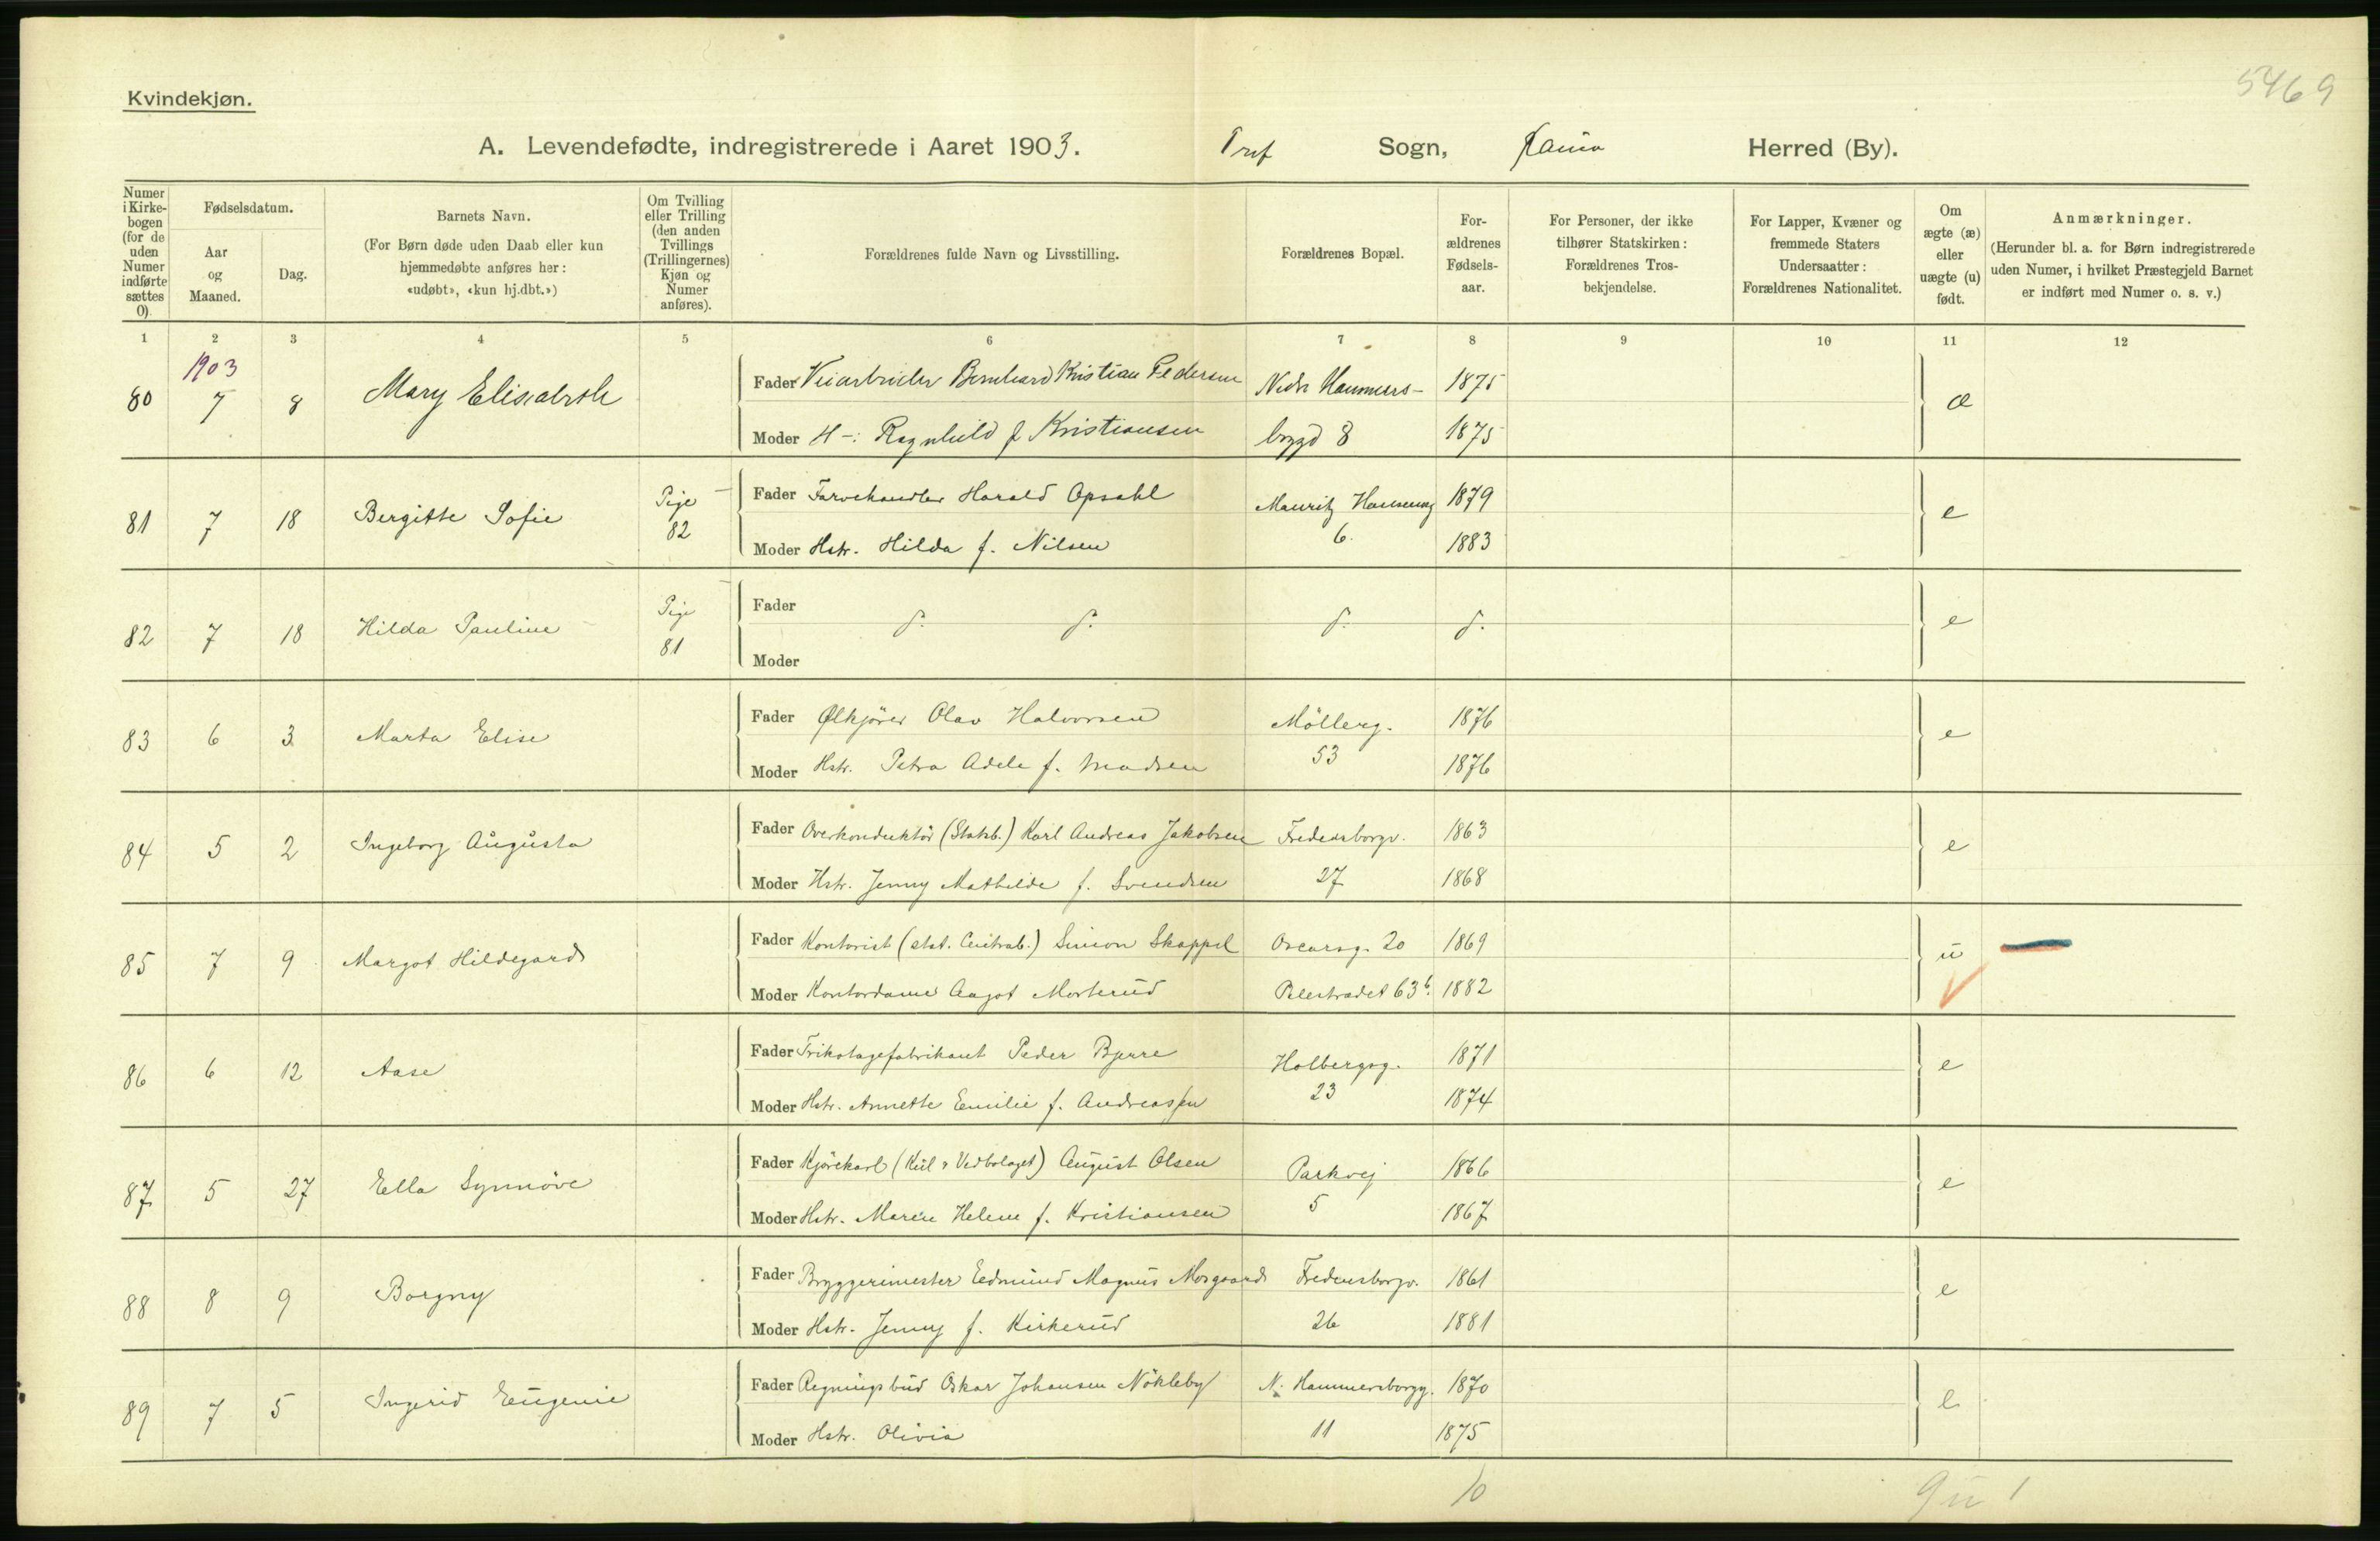 5469
Kvindekjøn.
A. Levendefødte, indregistrerede i Aaret 1903. Tref Sogn, Herred (By).
Numer i Kirkebogen (for de uden Numer indførte sættes 0).
Fødselsdatum.
Aar og Maaned.
Dag.
Barnets Navn.
(For Børn døde uden Daab eller kun hjemmedøbte anføres her: «udøbt», «kun hj.dbt.»)
Om Tvilling eller Trilling (den anden Tvillings (Trillingernes) Kjøn og Numer anføres).
Forældrenes fulde Navn og Livsstilling.
Forældrenes Bopæl.
Forældrenes Fødselsaar.
For Personer, der ikke tilhører Statskirken: Forældrenes Trosbekjendelse.
For Lapper, Kvæner og fremmede Staters Undersaatter: Forældrenes Nationalitet.
Om ægte (æ) eller uægte (u) født.
Anmærkninger.
(Herunder bl. a. for Børn indregistrerede uden Numer, i hvilket Præstegjeld Barnet er indført med Numer o. s. v.)
1 2 3 4 5 6 7 8 9 10 11 12
1903
80 7 8 Mary Elisabeth Fader Veiarbeider Bernhard Kristian Pedersen Nedr Hammers- 1875 æ
Moder H-: Ragnhild f Kristiansen bzgd 8 1875
81 7 18 Bergitte Sofie Pige 82 Fader Farvehandler Harald Opsahl Mauritz Hansensg 1879 e
Moder Hstr. Hilda f. Nilsen 6. 1883
82 7 18 Hilda Pauline Pige 81 Fader d. d. d. d. e
Moder
83 6 3 Marta Elise Fader Ølkjörer Olav Halvorsen Möllerg. 1876 e
Moder Hstr. Petra Adele f. Madsen 53 1876
84 5 2 Ingeborg Augusta Fader Overkonduktör (Statsb.) Karl Andreas Jakobsen Fredensborgv. 1863 e
Moder Hstr. Jenny Mathilde f. Svendsen 27 1868
85 7 9 Margot Hildegard Fader Kontorist (stat. Centralb.) Simon Skappel Oscarsg. 20 1869 u
Moder Kontordame Aagot Morterud Pilestradet 63b. 1882
86 6 12 Aase Fader Trikotagefabrikant Peder Bjerre Holbergsg. 1871 e
Moder Hstr. Annette Emilie f. Andreassen 23 1874
87 5 27 Ella Synnöve Fader Kjörekarl (Kul & Vedbolaget) August Olsen Parkvej 1866 e
Moder Hstr. Maren Helene f. Kristiansen 5 1867
88 8 9 Borgny Fader Bryggerimester Edmund Magnus Morgaard Fredensborgv. 1861 e
Moder Hstr. Jenny f. Kirkerud 26 1881
89 7 5 Ingerid Eugenie Fader Regningsbud Oskar Johansen Nökleby N. Hammersborgg. 1870 e
Moder Hstr. Olivia 11 1875
10 9 u 1